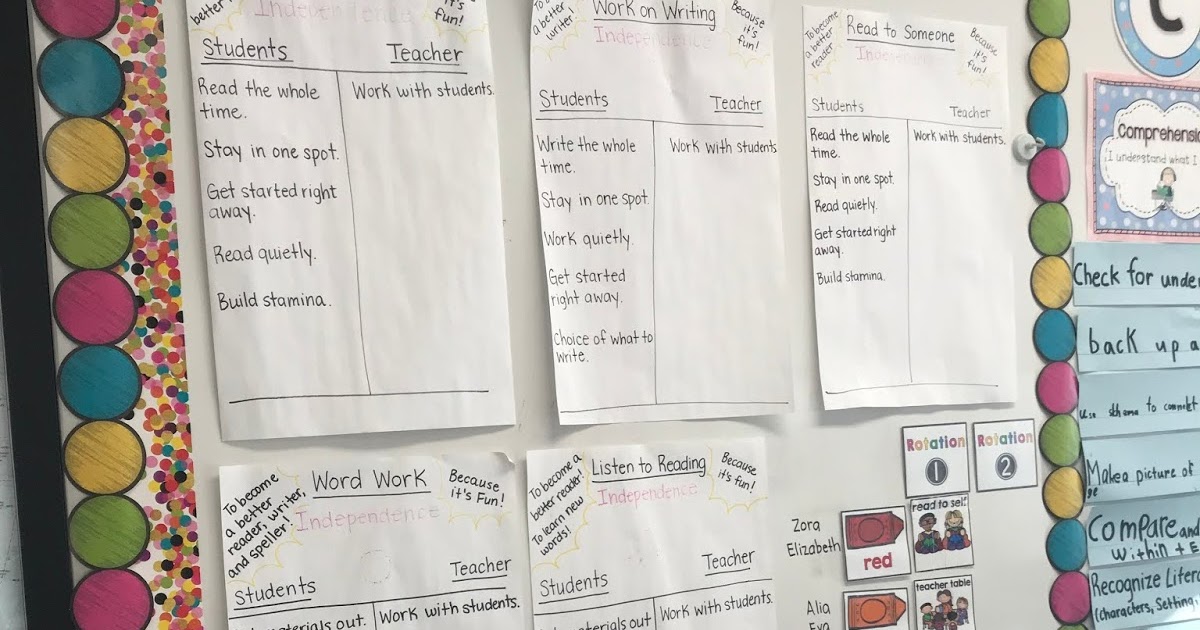 better
it's
fun!
Independence
Students
Teacher
Read the whole
time.
Stay in one spot.
Get started right
away.
Read quietly.
Build stamina.
Work with students.
To become
a better
writer!
Work on Writing
Because
it's
fun!
Independence
Students
Teacher
Write the whole
time.
Stay in one spot.
Work quietly.
Get started
right away.
Choice of what to
write.
Work with students
To become
a better
reader
Read to Someone
Because
it's
fun!
Independence
Students
Teacher
Read the whole
time.
Stay in one spot.
Read quietly.
Get started right
away.
Build stamina.
Work with students.
To become
a better
reader, writer,
and speller!
Word Work
Because
it's Fun!
Independence
Students
Teacher
materials out.
Work with students.
To become a
better reader.
To learn new
words!
Listen to Reading
Because
it's fun!
Independence
Students
Teacher
materials out
Work with students.
Rotation
1
Rotation
2
Zora
Elizabeth
red
read to self
Alia
Eva
teacher table
C
Comprehensi
I understand what I
Check for unde
back up a
use schema to connect
Make a picture of
Compare and
within t
Recognize Litera
(characters, Setting,